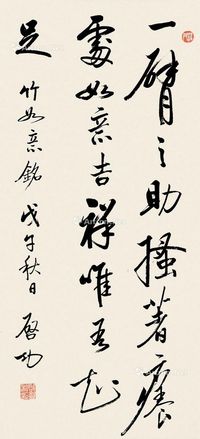 一臂之助搔着痒
处如意吉祥唯吾知
足 竹如意铭 戊午秋日 启功